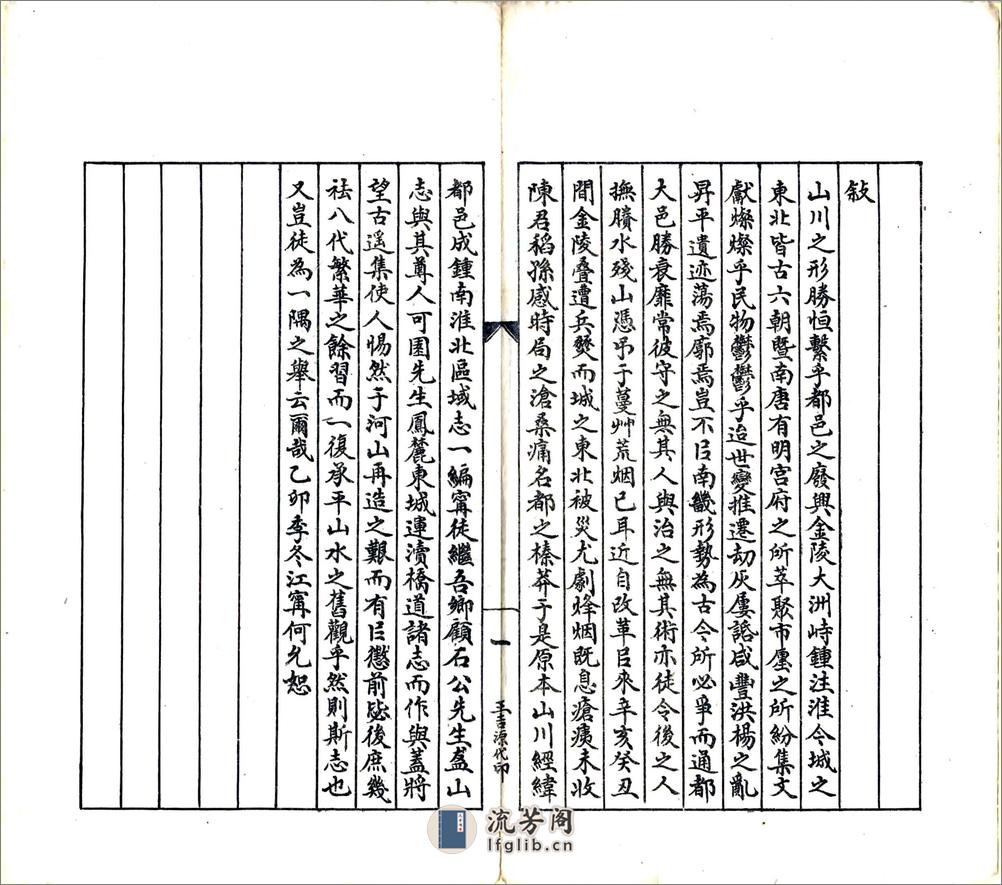 敍
山川之形勝恒繫乎都邑之廢興金陵大洲峙鍾注淮今城之
東北皆古六朝暨南唐有明宮府之所萃聚市廛之所紛集文
獻燦燦乎民物鬱鬱乎迨世變推遷劫灰屢諮咸豐洪楊之亂
昇平遺迹蕩焉廓焉豈不㠯南畿形勢為古今所必爭而通都
大邑勝衰靡常彼守之無其人與治之無其術亦徒令後之人
撫賸水殘山憑弔于蔓艸荒烟已耳近自改革㠯來辛亥癸丑
間金陵疊遭兵燹而城之東北被災尤劇烽烟既息瘡痍未收
陳君稻孫感時局之滄桑痛名都之榛莽于是原本山川經緯
都邑成鍾南淮北區域志一編甯徒繼吾鄉顧石公先生盋山
志與其尊人可園先生鳳麓東城連瀆橋道諸志而作與蓋將
望古遥集使人惕然于河山再造之艱而有㠯懲前毖後庶幾
祛八代繁華之餘習而一復承平山水之舊觀乎然則斯志也
又豈徒為一隅之舉云爾哉乙卯季冬江甯何允恕
一
王吉源代印
流芳阁
lfglib.cn